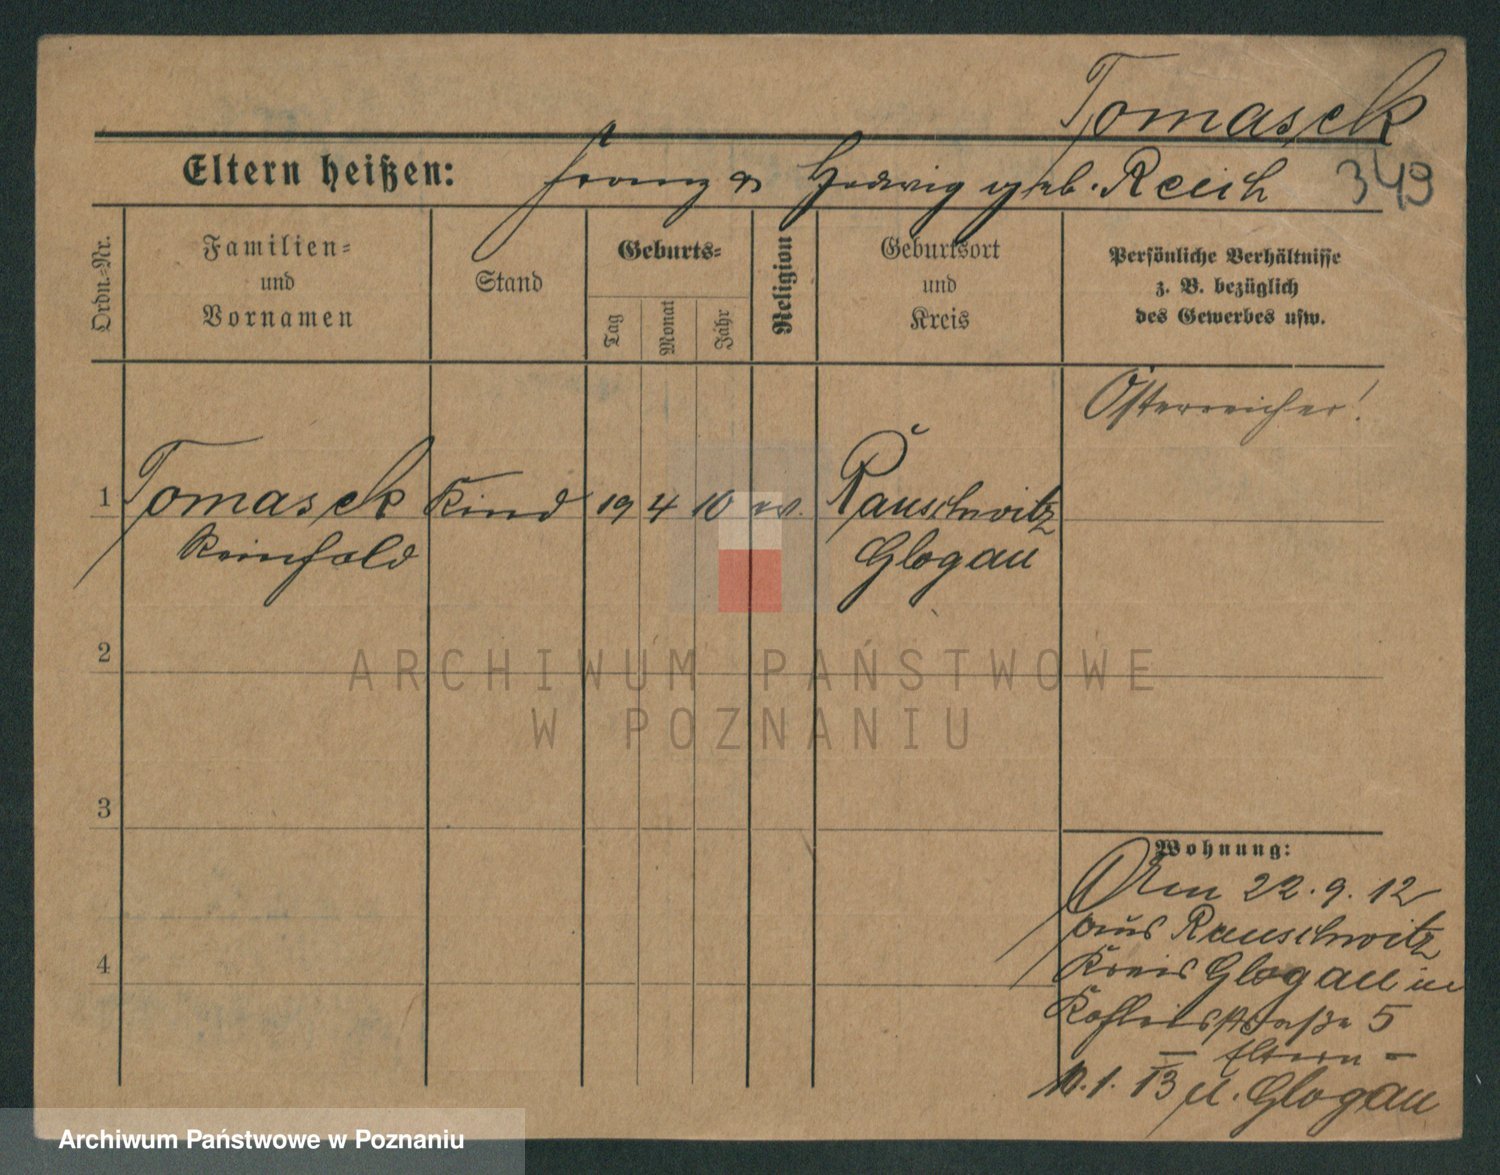 Tomasek
Eltern heißen: Franz & Hedwig geb. Reich 349
Ordn.-Nr.
Familien-
und
Vornamen
Stand
Geburts-
Tag
Monat
Jahr
Religion
Geburtsort
und
Kreis
Persönliche Verhältnisse
z. B. bezüglich
des Gewerbes usw.
Österreicher!
1 Tomasek Kind 19 4 10 ev. Rauschwitz
Reinhold Glogau
2
ARCHIWUM PAŃSTWOWE
W POZNANIU
3
Wohnung:
Am 22.9.12
aus Rauschwitz
4
Kreis Glogau in
5
– Eltern –
1.13 n. Glogau
Archiwum Państwowe w Poznaniu